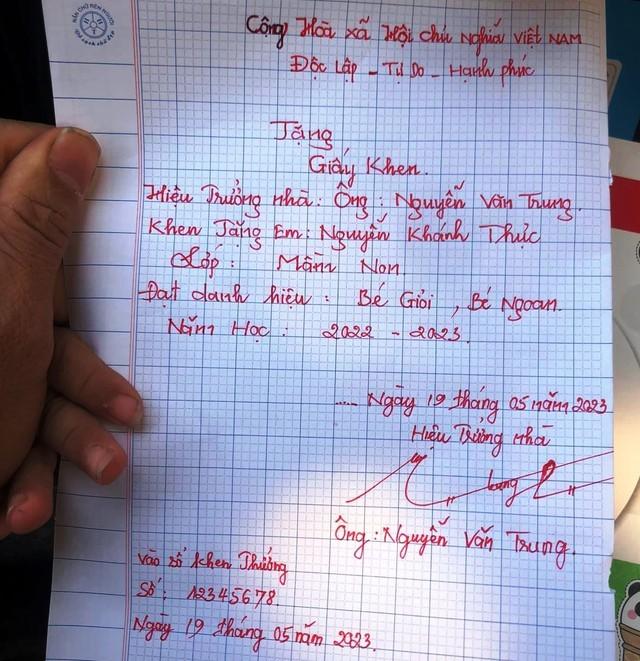 NẮN CHỮ RÈN NGƯỜI
Cộng Hoà xã Hội chủ nghĩa việt NAM
Độc Lập - Tự Do - Hạnh phúc
Tặng
Giấy Khen.
Hiệu Trưởng nhà: Ông: Nguyễn Văn Trung.
Khen Tặng Em: Nguyễn Khánh Thực
Lớp: Mầm Non.
Đạt danh hiệu: Bé Giỏi, Bé Ngoan.
Năm Học: 2022 - 2023.
..... Ngày 19 tháng 05 năm 2023
Hiệu Trưởng nhà
Ông: Nguyễn Văn Trung.
vào sổ khen Thưởng
Số: 12345678.
Ngày 19 tháng 05 năm 2023.